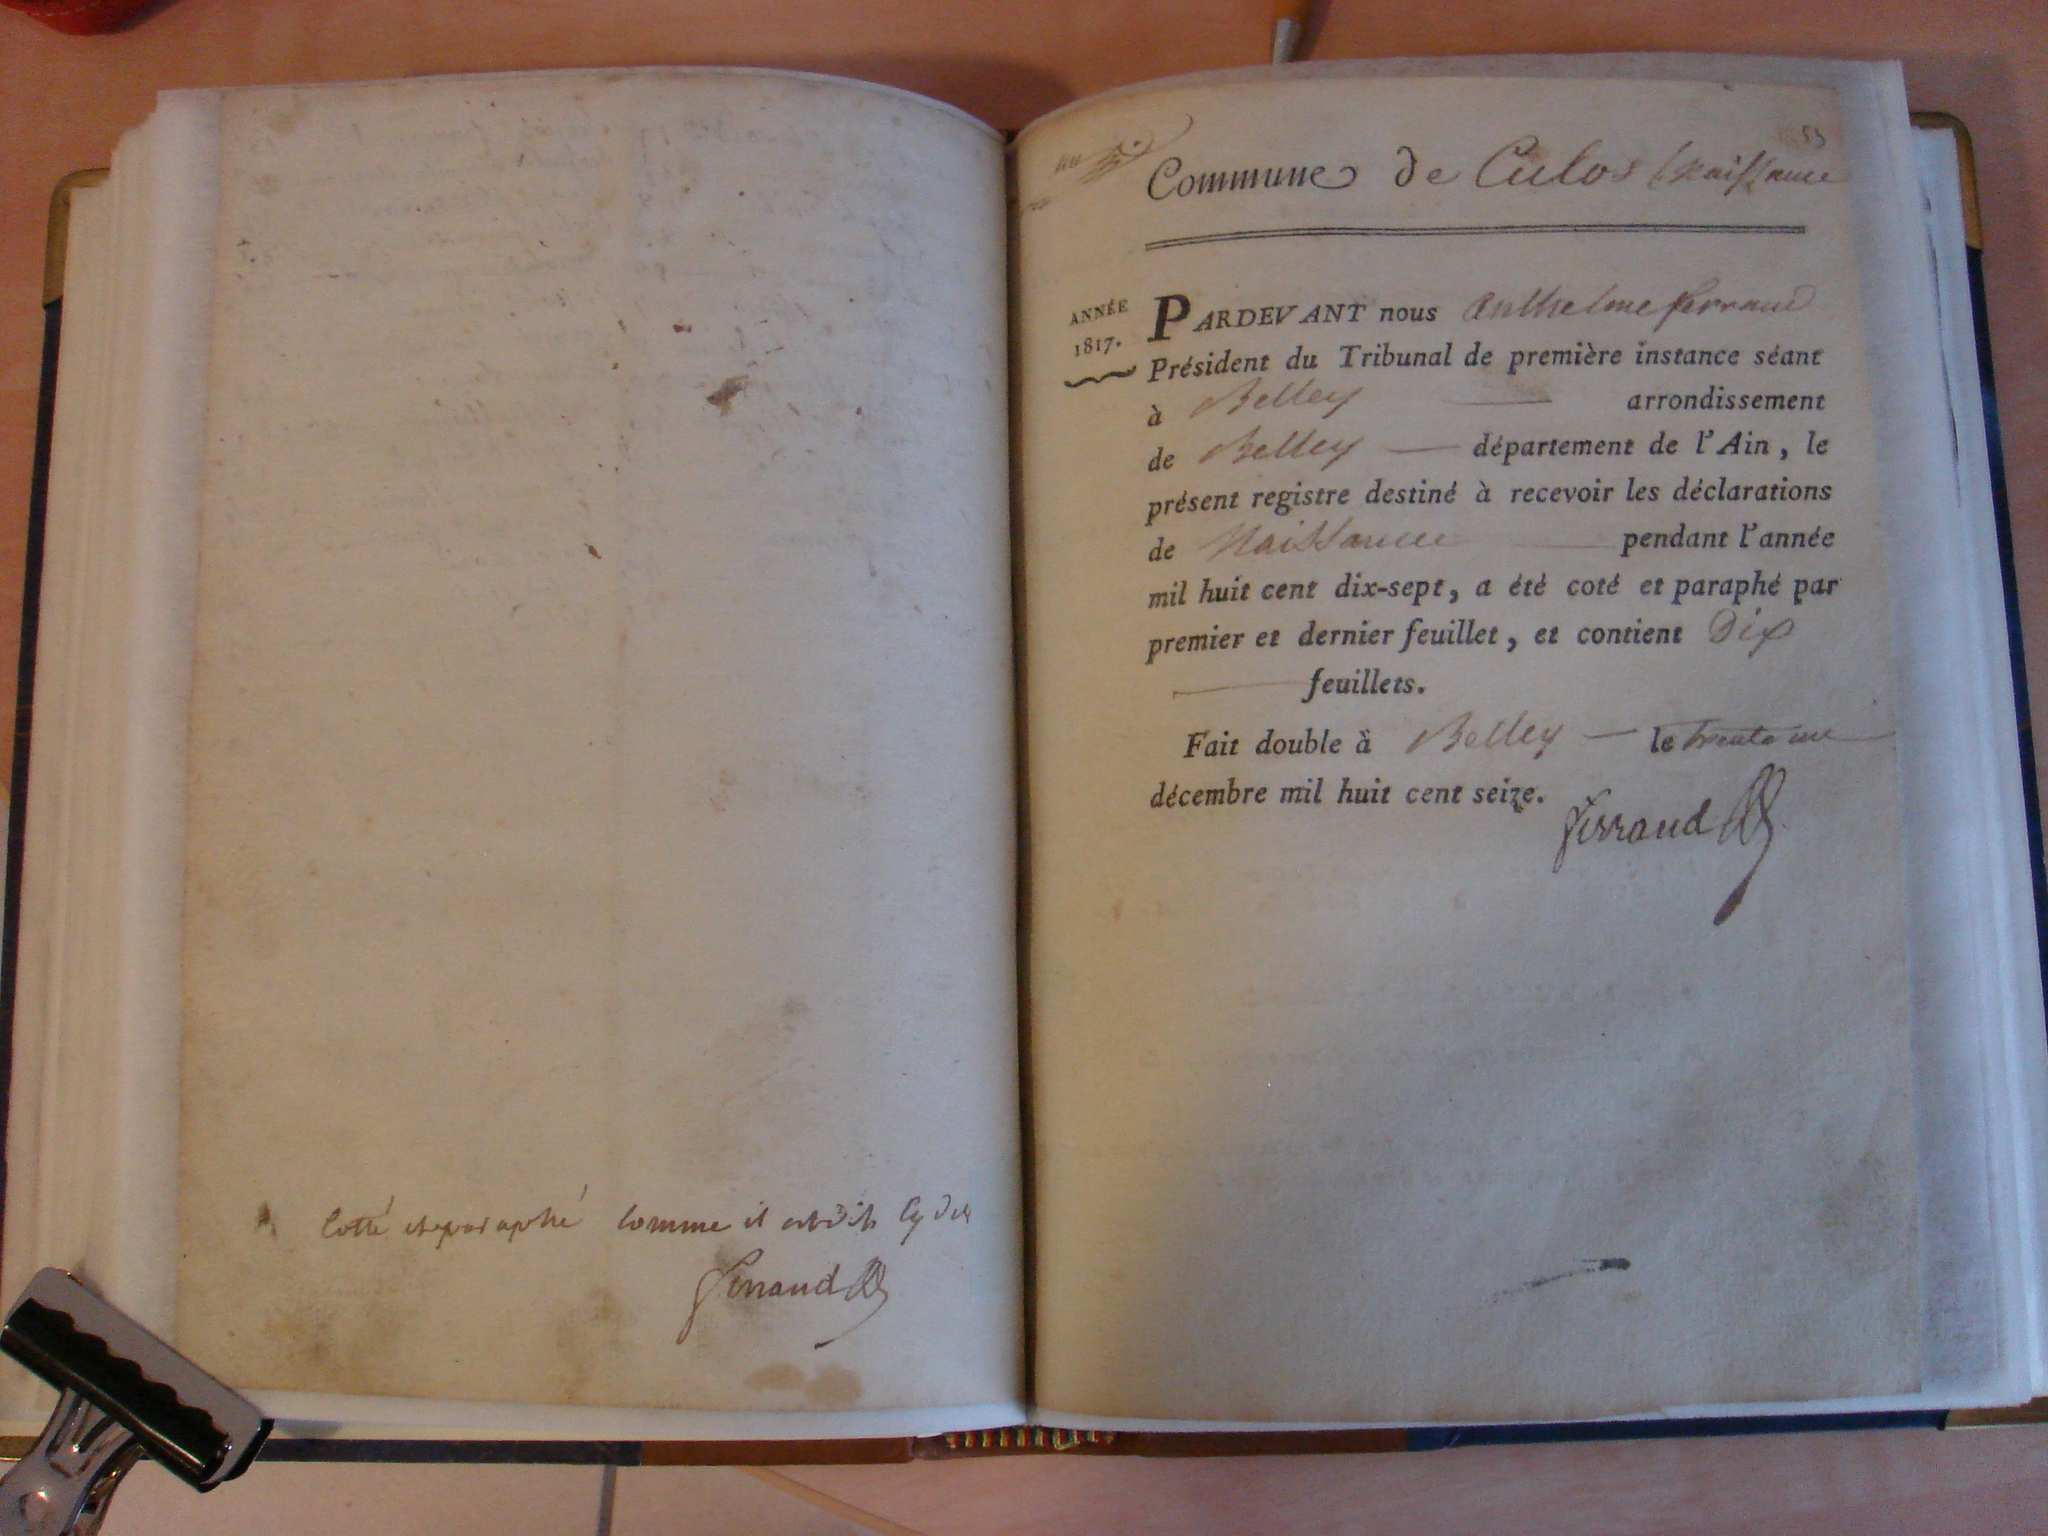 Cotté et paraphé comme il est dit cy der
Ferraud
53
Commune de Culos Naissance
ANNÉE
1817.
PARDEVANT nous Anthelme ferraud
Président du Tribunal de première instance séant
à Belley arrondissement
de Belley département de l'Ain, le
présent registre destiné à recevoir les déclarations
de Naissance pendant l'année
mil huit cent dix-sept, a été coté et paraphé par
premier et dernier feuillet, et contient Dix
feuillets.
Fait double à Belley le trente un
décembre mil huit cent seize.
Ferraud